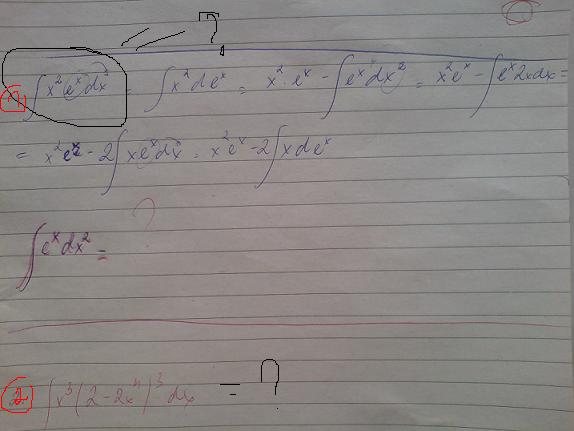 ?
1 ∫ x² (e^x) dx = ∫ x² de^x = x² · e^x - ∫ e^x dx² = x² e^x - ∫ e^x 2x dx =
= x² e^x - 2 ∫ x e^x dx = x² e^x - 2 ∫ x de^x
∫ e^x dx² = ?
2 ∫ x³ (2 - 2x⁴)³ dx = ?